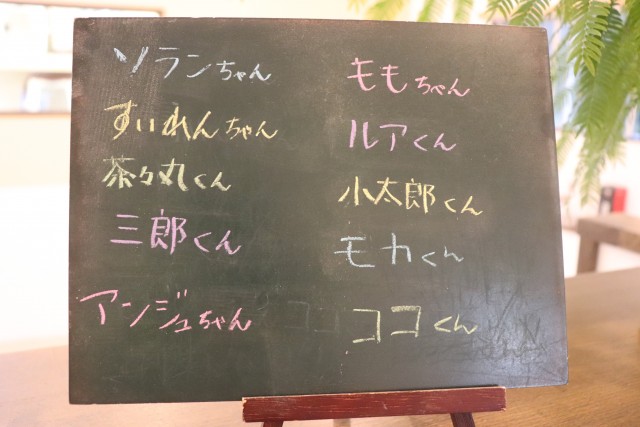 ソランちゃん
すいれんちゃん
茶々丸くん
三郎くん
アンジュちゃん
ももちゃん
ルアくん
小太郎くん
モカくん
ココくん